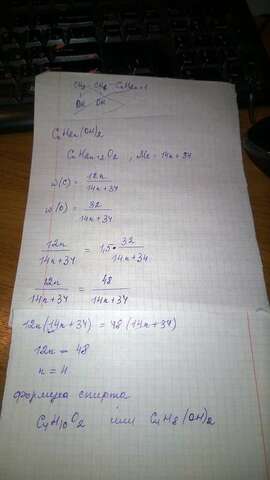 CH₂ - CH₂ - CnH2n+1
OH OH
CnH2n(OH)2
CnH2n+2O2 , Mr = 14n+34
w(C) = 12n / 14n+34
w(O) = 32 / 14n+34
12n / 14n+34 = 1,5 · 32 / 14n+34
12n / 14n+34 = 48 / 14n+34
12n(14n+34) = 48(14n+34)
12n = 48
n = 4
формула спирта
C4H10O2 или C4H8(OH)2